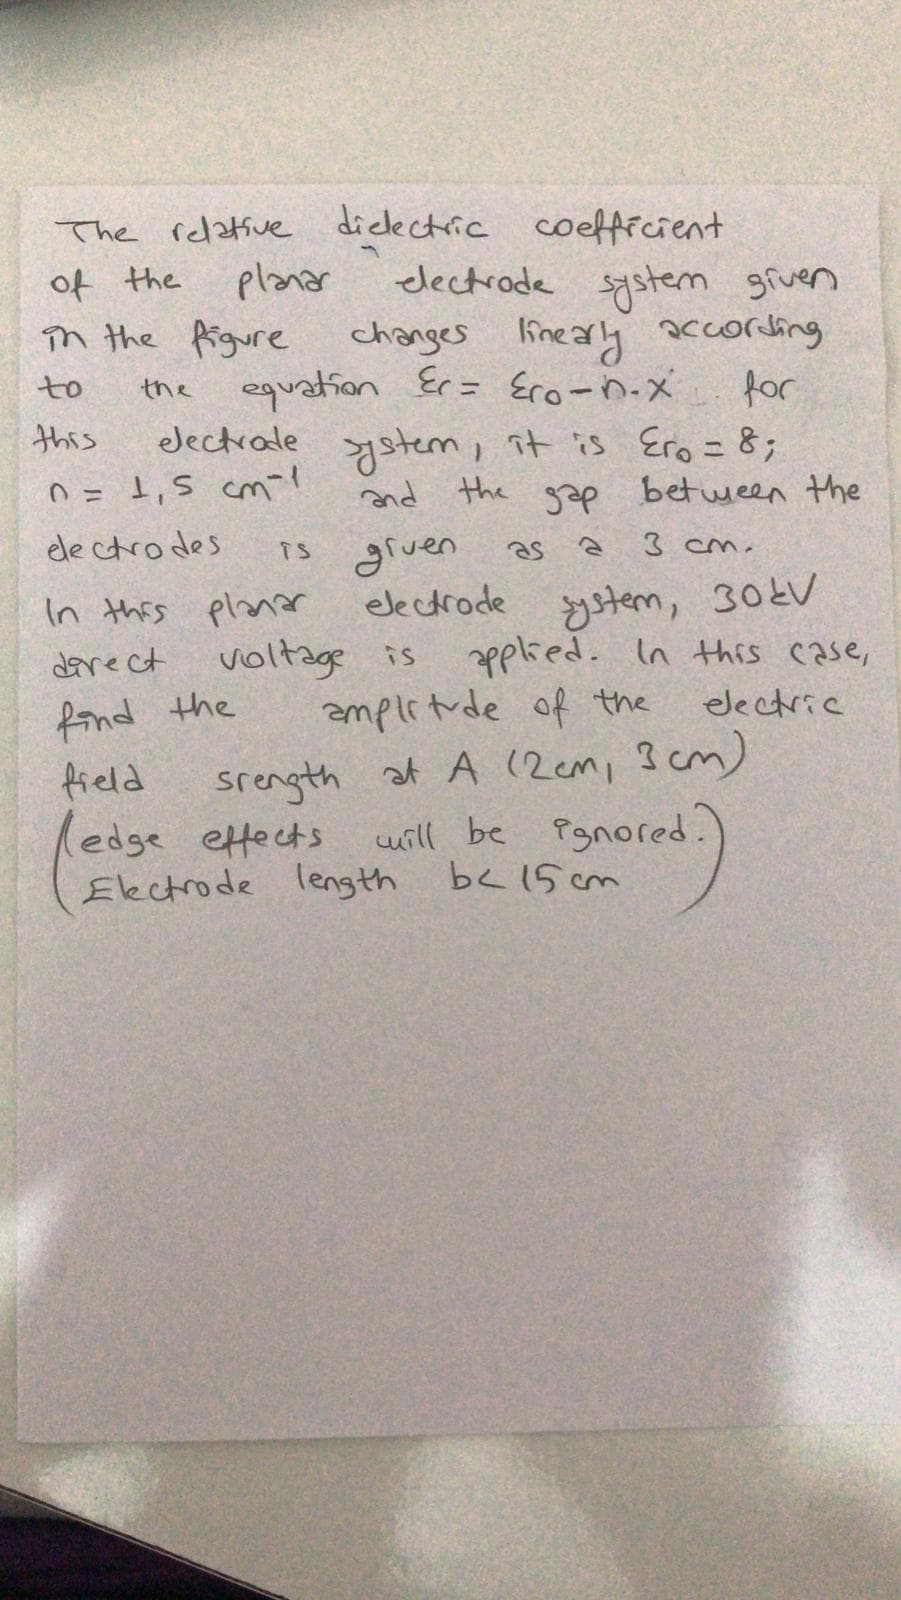 The relative dielectric coefficient
of the planar electrode system given
in the figure changes linearly according
to the equation Er = Ero-n.x. for
this electrode system, it is Ero = 8;
n = 1,5 cm⁻¹ and the gap between the
electrodes is given as a 3 cm.
In this planar electrode system, 30kV
direct voltage is applied. In this case,
find the amplitude of the electric
field srength at A (2cm, 3cm)
(edge effects will be ignored.)
(Electrode length b<15 cm)